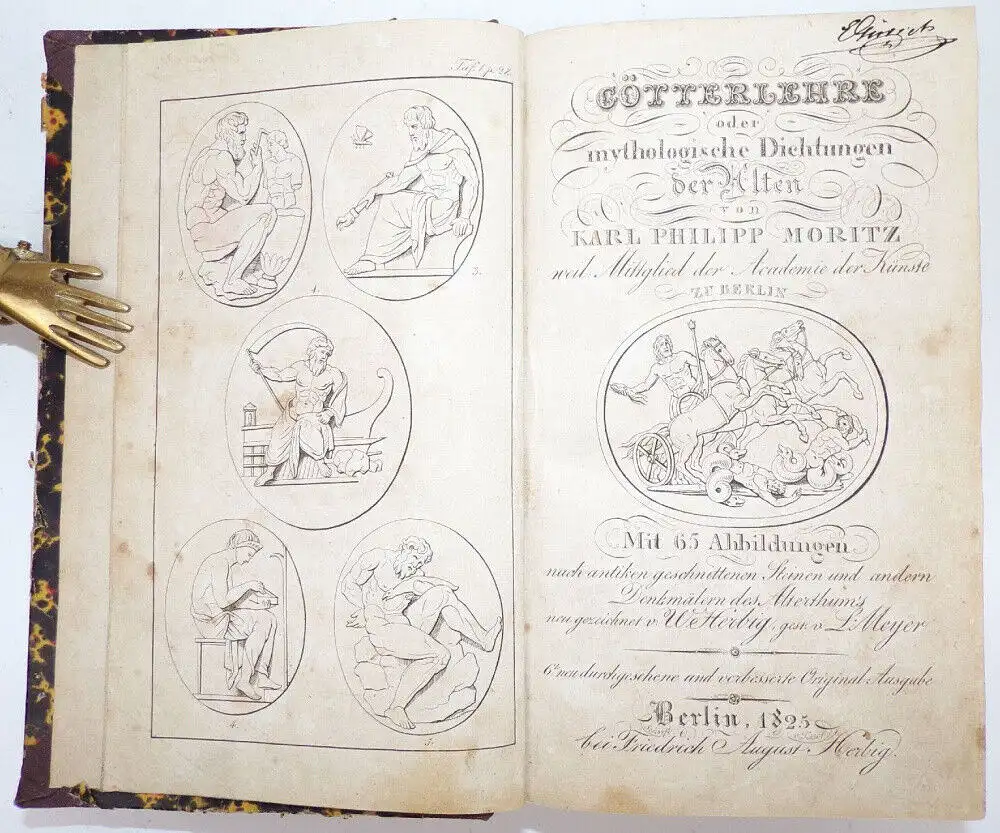 Taf. 1. p. 21.
2.
3.
1.
4.
5.
GÖTTERLEHRE
oder
mythologische Dichtungen
der Alten
von
KARL PHILIPP MORITZ
weil. Mittglied der Academie der Künste
ZU BERLIN
Mit 65 Abbildungen
nach antiken geschnittenen Steinen und andern
Denkmälern des Alterthum's
neu gezeichnet v. W. Herbig, gest. v. L. Meyer
6te neu durchgesehene und verbesserte Original-Ausgabe
Berlin, 1825
bei Friedrich August Herbig.